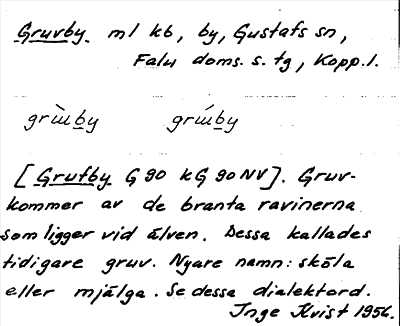 Gruvby ml kb, by, Gustafs sn,
Falu doms. s. tg, Kopp. l.
grùu̲by grúu̲by
[Grufby G 90 kG 90 NV]. Gruv-
kommer av de branta ravinerna
som ligger vid älven. Dessa kallades
tidigare gruv. Nyare namn: skåla
eller mjälga. Se dessa dialektord.
Inge Kvist 1956.